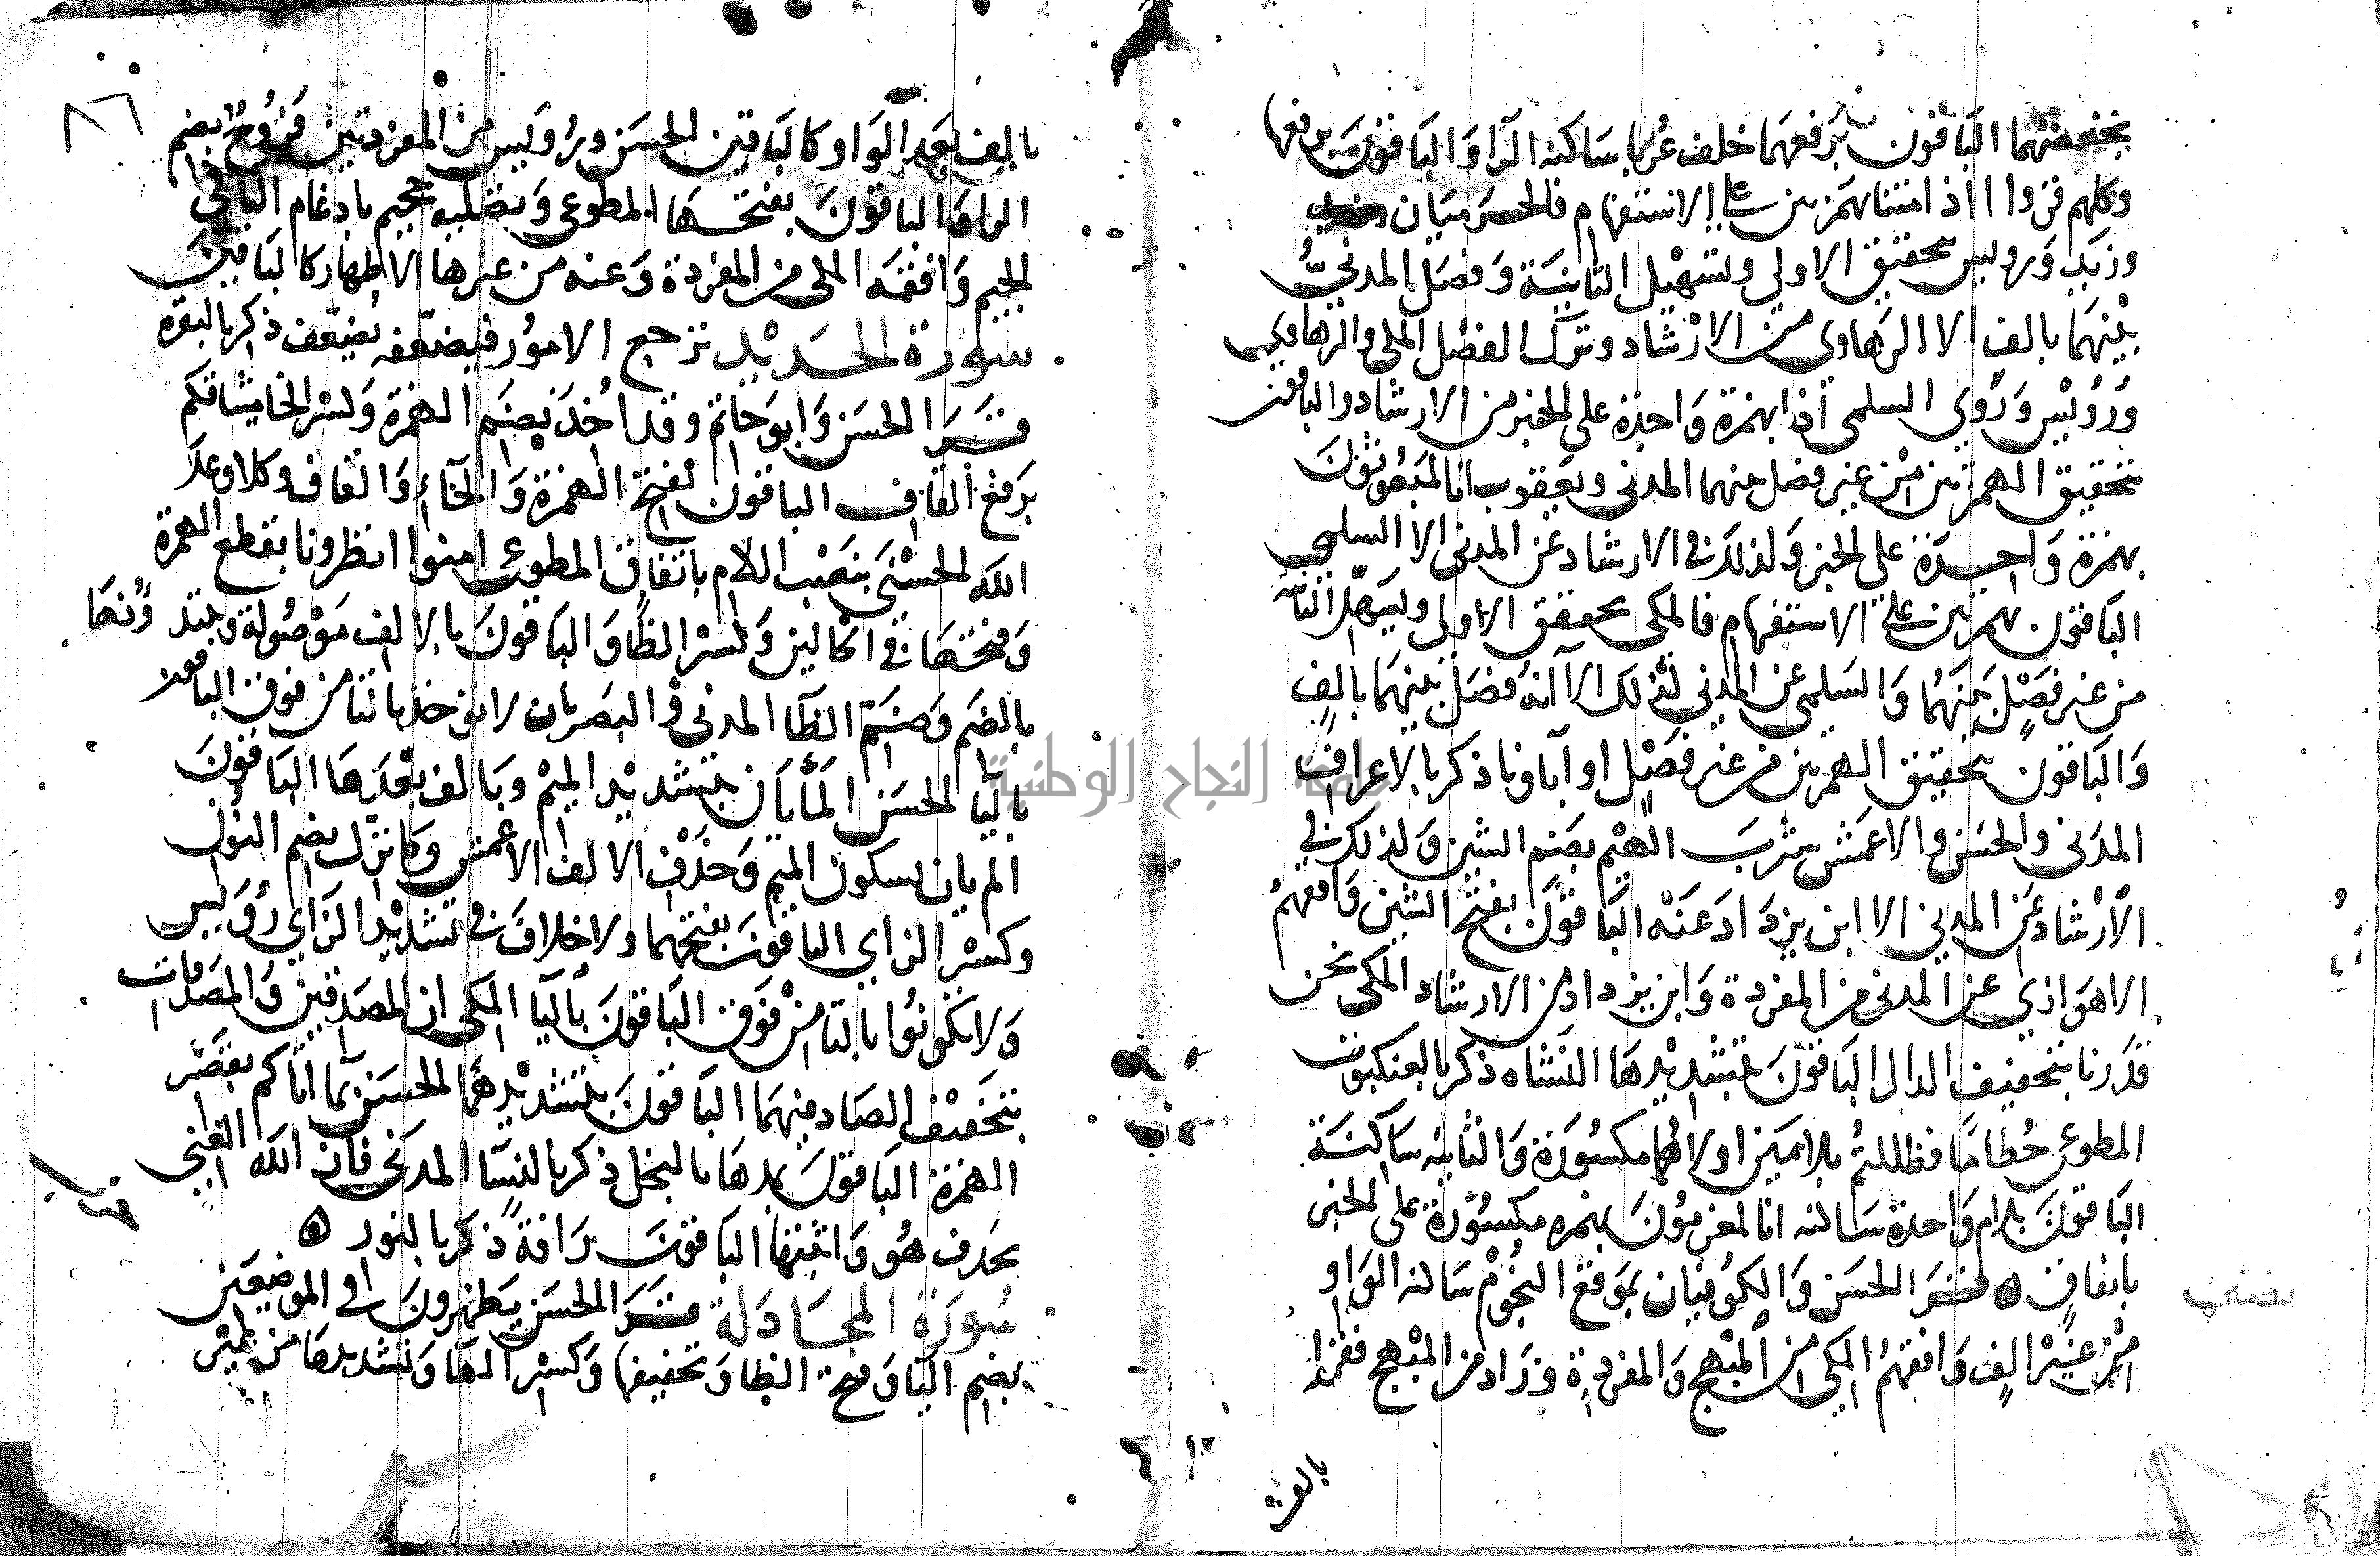 بخفضهما الباقون برفعهما خلف عربا ساكنة الرا والباقون من رفعها
وكلهم قروا ااذا متنا بهمزتين على الاستفهام فالحرميان
وزيد ورويس بتحقيق الاولى وتسهيل الثانية وفصل المدني
بينهما بالف الا الرهاوي من الارشاد وترك الفصل المكي والرهاوي
ورويس وروي السلمي اذا بهمزة واحدة على الخبر من الارشاد والباقون
بتحقيق الهمزتين من غير فصل بينهما المدني ويعقوب انا لمبعوثون
بهمزة واحدة على الخبر وكذلك في الارشاد عن المدني الا السلمي
الباقون بهمزتين على الاستفهام فالمكي يحقق الاولى ويسهل الثانية
من غير فصل بينهما والسلمي عن المدني كذلك الا انه فصل بينهما بالف
والباقون بتحقيق الهمزتين من غير فصل او آباونا ذكر بالاعراف
المدني والحسن والاعمش شرب الهيم بضم الشين وكذلك في
الارشاد عن المدني الا ابن يزداد عنه الباقون بفتح الشين وافقهم
الاهوازي عن المدني من المفردة وابن يزداد من الارشاد المكي نحن
قدرنا بتخفيف الدال الباقون بتشديدها النشاه ذكر بالعنكبوت
المطوعي حطاما فظللتم بلامين اولاهما مكسورة والثانية ساكنة
الباقون بلام واحدة ساكنه انا لمغرمون بهمزه مكسورة على الخبر
باتفاق ۵ قرا الحسن والكوفيان بموقع النجوم ساكنه الواو
من غير الف وافقهم المكي من المبهج والمفردة وزاد من المبهج فقرا
بالف
بالف بعد الواو كالباقين الحسن ورويس من المفردتين فروح بضم
الرا والباقون بفتحها المطوعي وتصلية جحيم بادغام التا في
الجيم وافقه المكي من المفردة وعنه من غيرها الاظهار كالباقين
سورة الحديد ترجع الامور فيضعفه يضعف ذكر بالبقرة
قرا الحسن وابو حاتم وقد اخذ بضم الهمزة وكسر الخا ميثاقكم
برفع القاف الباقون بفتح الهمزة والخاء والقاف وكلا وعد
الله الحسنى بنصب اللام باتفاق المطوعي امنوا انظرونا بقطع الهمزة
وفتحها في الحالين وكسر الظا والباقون بالالف موصولة وتبتدونها
بالضم وضم الظا المدني والبصريان لا توخذ بالتا من فوق الباقون
باليا الحسن المايان بتشديد الميم وبالف بعدها الباقون
الم يان بسكون الميم وحذف الالف الاعمش وما نزل بضم النون
وكسر الزاي الباقون بفتحهما ولا خلاف في تشديد الزاي رويس
ولا تكونوا بالتا من فوق الباقون باليا المكي ان المصدقين والمصدقات
بتخفيف الصاد فيهما الباقون بتشديدهما الحسن بما اتاكم بقصر
الهمزة الباقون بمدها بالبخل ذكر بالنسا المدني فان الله الغني
بحذف هو واثبتها الباقون رافة ذكر بالنور ۵
سورة المجادلة قرا الحسن يظهرون في الموضعين
بضم اليا وفتح الظا وتخفيفها وكسر الها وتشديدها من غير